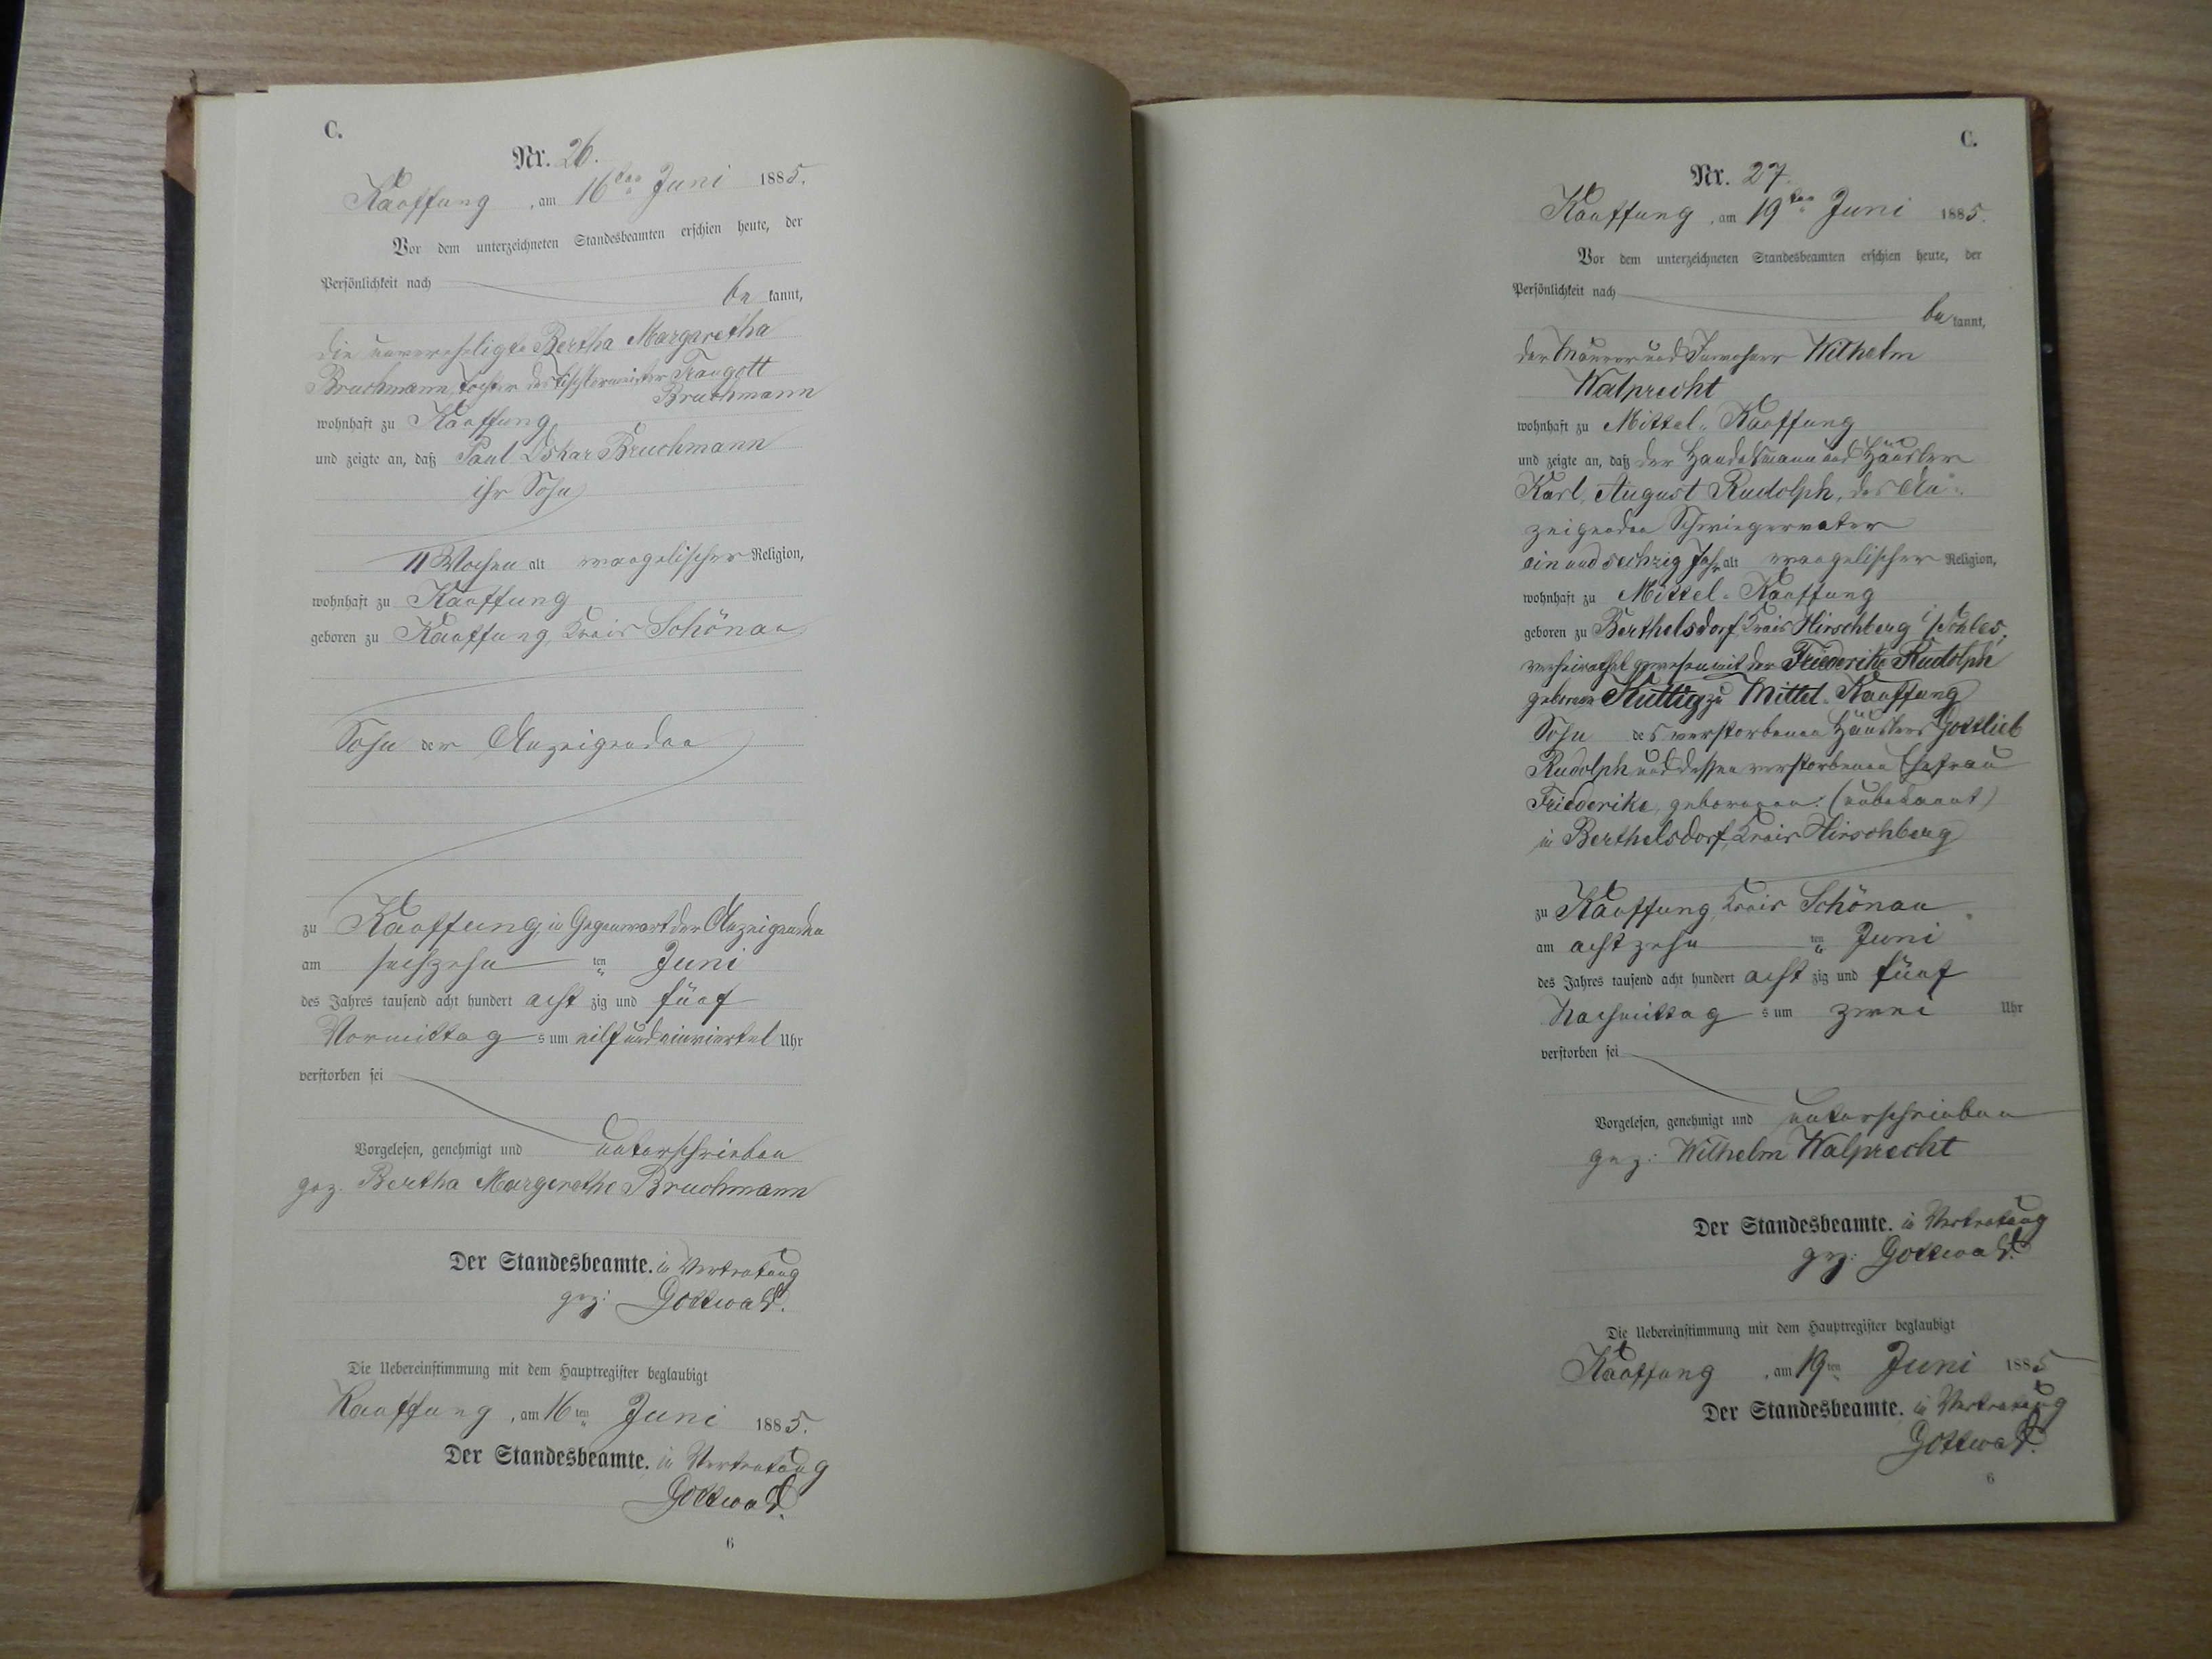 C.
Nr. 26.
Kauffung, am 16ten Juni 1885.
Vor dem unterzeichneten Standesbeamten erschien heute, der
Persönlichkeit nach
be kannt,
die unvereheligte Bertha Margaretha
Bruchmann, Tochter des Tischlermeister Traugott
Bruchmann
wohnhaft zu Kauffung
und zeigte an, daß Paul Oskar Bruchmann
ihr Sohn
11 Wochen alt evangelischer Religion,
wohnhaft zu Kauffung
geboren zu Kauffung, Kreis Schönau
Sohn der Anzeigenden
zu Kauffung, in Gegenwart der Anzeigenden
am sechszehn ten Juni
des Jahres tausend acht hundert acht zig und fünf
Vormittag s um eilf und ein viertel Uhr
verstorben sei
Vorgelesen, genehmigt und unterschrieben
gez. Bertha Margarethe Bruchmann
Der Standesbeamte. in Vertretung
gez: Gottwald.
Die Uebereinstimmung mit dem Hauptregister beglaubigt
Kauffung, am 16 ten Juni 1885.
Der Standesbeamte. in Vertretung
Gottwald.
6
C.
Nr. 27.
Kauffung, am 19ten Juni 1885.
Vor dem unterzeichneten Standesbeamten erschien heute, der
Persönlichkeit nach
be kannt,
der Maurer und Inwohner Wilhelm
Walprecht
wohnhaft zu Mittel-Kauffung
und zeigte an, daß der Handelsmann und Häusler
Karl, August Rudolph, des An-
zeigenden Schwiegervater
ein und sechzig Jahr alt evangelischer Religion,
wohnhaft zu Mittel-Kauffung
geboren zu Berthelsdorf, Kreis Hirschberg i/Schles,
verheirathet gewesen mit der Friederike Rudolph
geborene Küttig zu Mittel-Kauffung
Sohn des verstorbenen Häuslers Gottlieb
Rudolph und dessen verstorbenen Ehefrau
Friederike, geborenen: (unbekannt)
in Berthelsdorf, Kreis Hirschberg
zu Kauffung, Kreis Schönau
am achtzehn ten Juni
des Jahres tausend acht hundert acht zig und fünf
Nachmittag s um zwei Uhr
verstorben sei
Vorgelesen, genehmigt und unterschrieben
gez: Wilhelm Walprecht
Der Standesbeamte. in Vertretung
gez: Gottwald.
Die Uebereinstimmung mit dem Hauptregister beglaubigt
Kauffung, am 19 ten Juni 1885
Der Standesbeamte. in Vertretung
Gottwald.
6